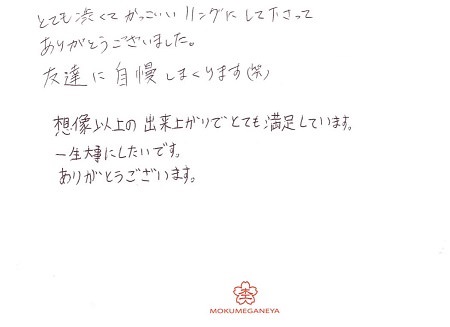 とても渋くてかっこいいリングにして下さって
ありがとうございました。
友達に自慢しまくります(笑)
想像以上の出来上がりでとても満足しています。
一生大事にしたいです。
ありがとうございます。
MOKUMEGANEYA